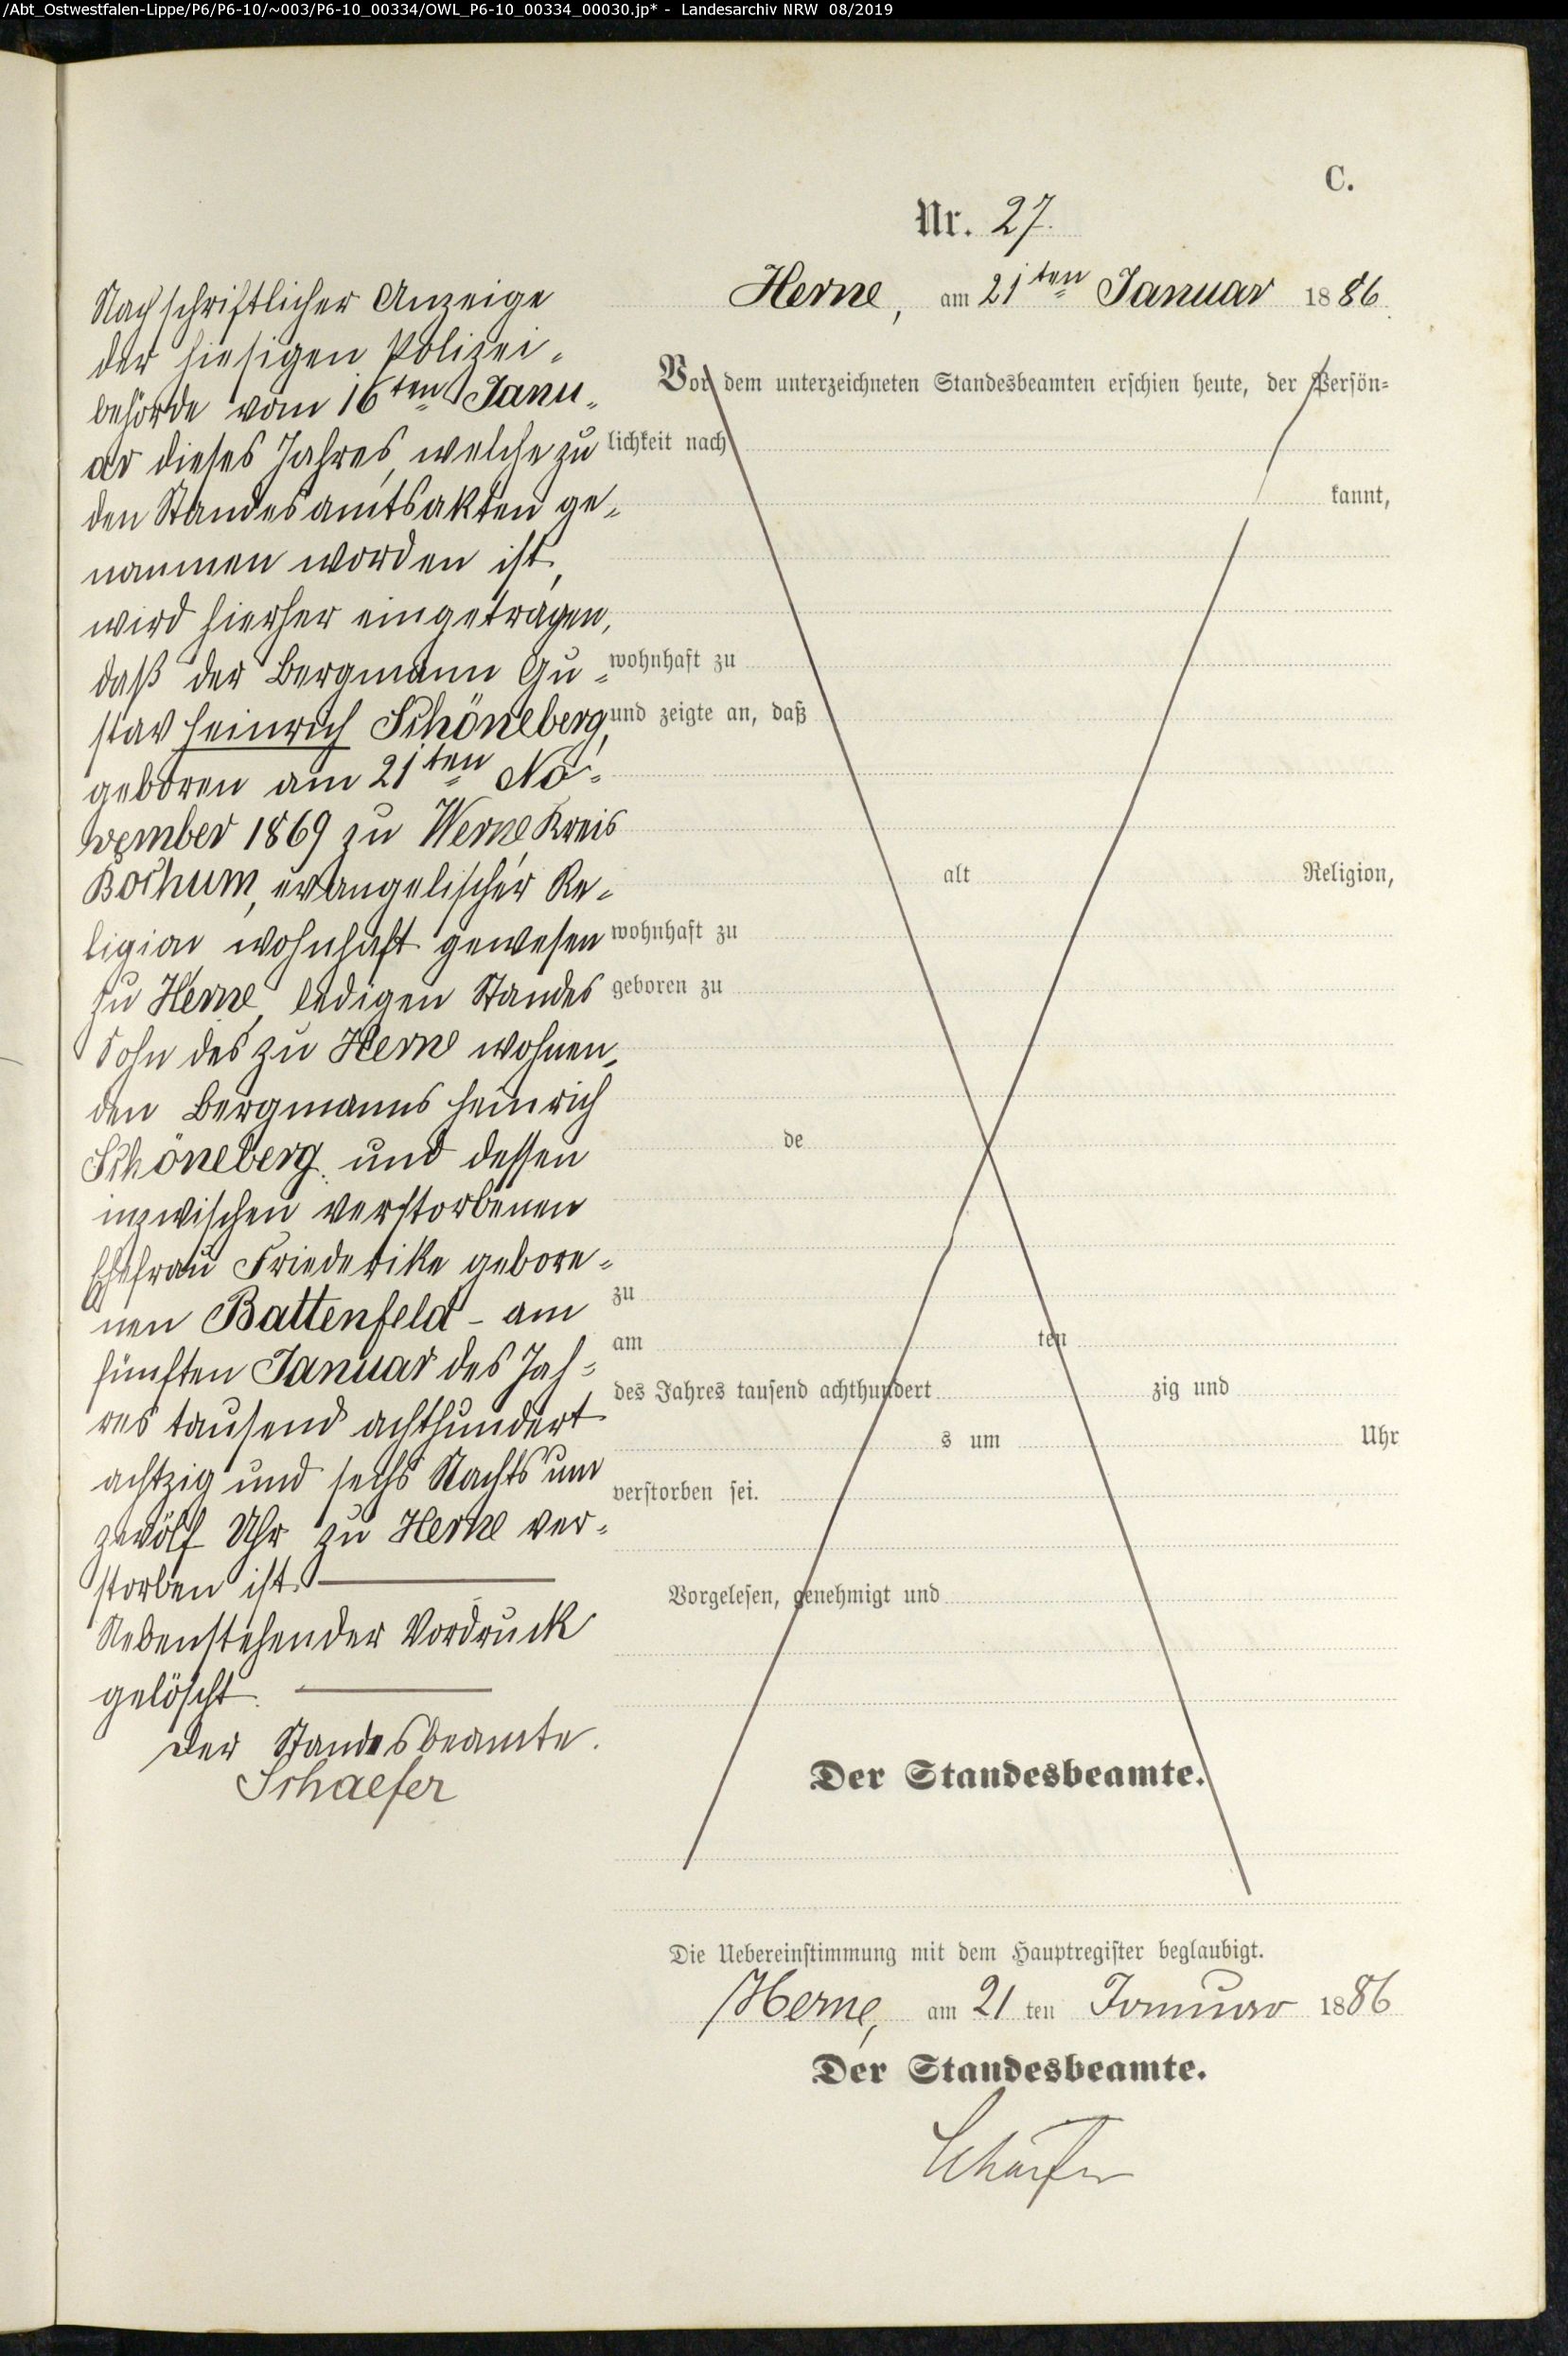 /Abt_Ostwestfalen-Lippe/P6/P6-10/~003/P6-10_00334/OWL_P6-10_00334_00030.jp* - Landesarchiv NRW 08/2019
C.
Nr. 27.
Herne, am 21ten Januar 1886.
Nach schriftlicher Anzeige
der hiesigen Polizei-
behörde vom 16ten Janu-
ar dieses Jahres, welche zu
den Standesamtsakten ge-
nommen worden ist,
wird hierher eingetragen,
daß der Bergmann Gu-
stav Heinrich Schöneberg,
geboren am 21ten No-
vember 1869 zu Werne Kreis
Bochum, evangelischer Re-
ligion wohnhaft gewesen
zu Herne, ledigen Standes
Sohn des zu Herne wohnen-
den Bergmanns Heinrich
Schöneberg und dessen
inzwischen verstorbenen
Ehefrau Friederike gebore-
nen Battenfeld - am
fünften Januar des Jah-
res tausend achthundert
achtzig und sechs Nachts um
zwölf Uhr zu Herne ver-
storben ist.
Nebenstehender Vordruck
gelöscht.
Der Standesbeamte.
Schaefer
Vor dem unterzeichneten Standesbeamten erschien heute, der Persön-
lichkeit nach
kannt,
wohnhaft zu
und zeigte an, daß
alt Religion,
wohnhaft zu
geboren zu
de
zu
am ten
des Jahres tausend achthundert zig und
s um Uhr
verstorben sei.
Vorgelesen, genehmigt und
Der Standesbeamte.
Die Uebereinstimmung mit dem Hauptregister beglaubigt.
Herne, am 21 ten Januar 1886
Der Standesbeamte.
Schaefer